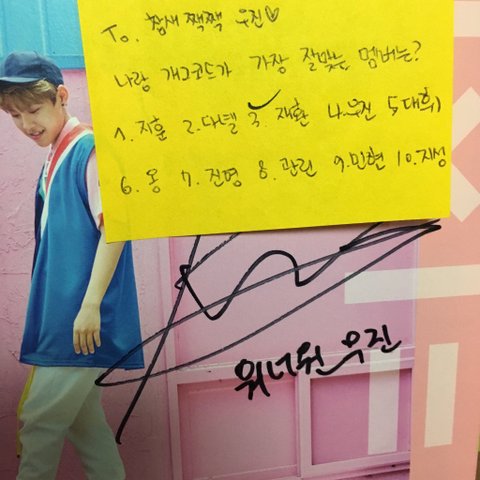 To. 참새 짹짹 우진♡
나랑 개그코드가 가장 잘맞는 멤버는?
1. 지훈 2. 다넬 3. 재환 4. 우진 5. 대휘
6. 옹 7. 진영 8. 관린 9. 민현 10. 지성
워너원 우진